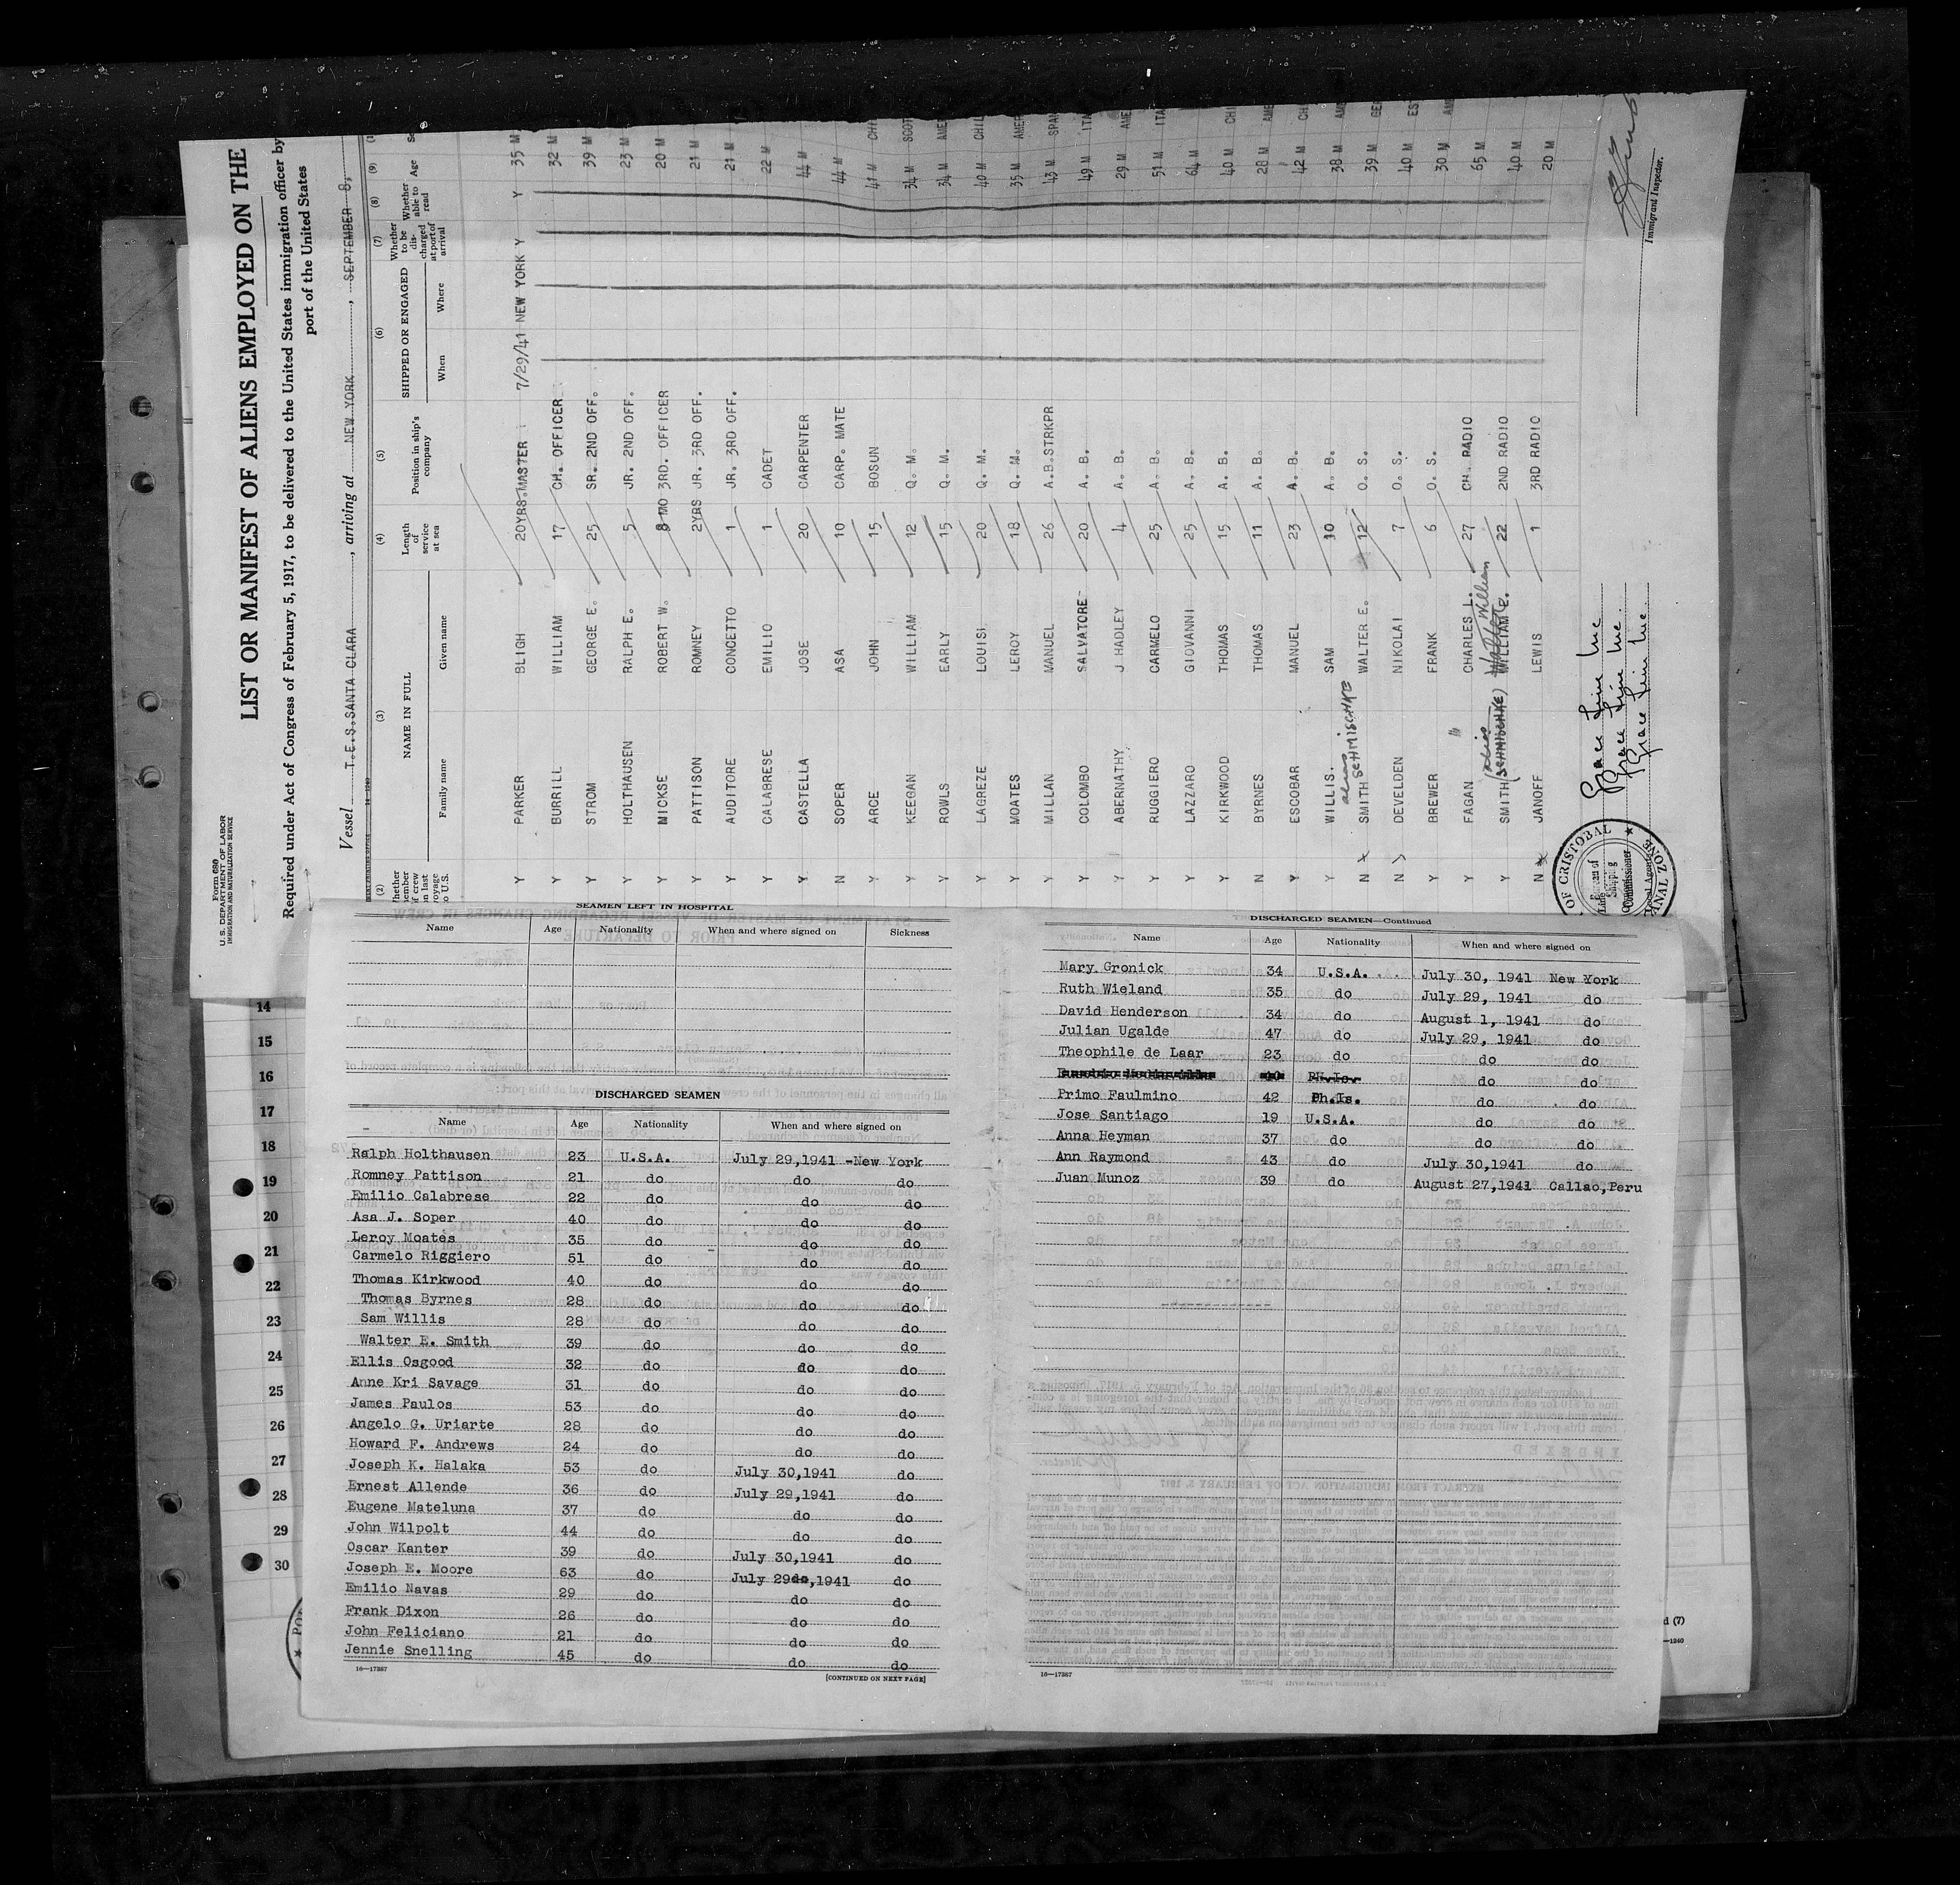 Form 680
U. S. DEPARTMENT OF LABOR
IMMIGRATION AND NATURALIZATION SERVICE
LIST OR MANIFEST OF ALIENS EMPLOYED ON THE
Required under Act of Congress of February 5, 1917, to be delivered to the United States immigration officer by
port of the United States
Vessel T.E.S.SANTA CLARA, arriving at NEW YORK, SEPTEMBER 8,
(2) (3) (4) (5) (6) (7) (8) (9)
NAME IN FULL SHIPPED OR ENGAGED
Family name Given name Length of service at sea Position in ship's company When Where Whether to be discharged at port of arrival Whether able to read Age
Y PARKER BLIGH 20YRS. MASTER 7/29/41 NEW YORK Y Y 35 M
Y BURRILL WILLIAM 17 CH. OFFICER 32 M
Y STROM GEORGE E. 25 SR. 2ND OFF. 39 M
Y HOLTHAUSEN RALPH E. 5 JR. 2ND OFF. 23 M
Y MICKSE ROBERT W. 8 MO 3RD. OFFICER 20 M
Y PATTISON ROMNEY 2YRS JR. 3RD OFF. 21 M
Y AUDITORE CONCETTO 1 JR. 3RD OFF. 21 M
Y CALABRESE EMILIO 1 CADET 22 M
Y CASTELLA JOSE 20 CARPENTER 44 M
N SOPER ASA 10 CARP. MATE 44 M
Y ARCE JOHN 15 BOSUN 41 M CHI
Y KEEGAN WILLIAM 12 Q. M. 34 M SCOT
Y ROWLS EARLY 15 Q. M. 34 M AME
Y LAGREZE LOUIS 20 Q. M. 40 M CHIL
Y MOATES LEROY 18 Q. M. 35 M AMER
Y MILLAN MANUEL 26 A.B.STRKPR 43 M SPAN
Y COLOMBO SALVATORE 20 A. B. 49 M ITA
Y ABERNATHY J HADLEY 4 A. B. 29 M AME
Y RUGGIERO CARMELO 25 A. B. 51 M ITA
Y LAZZARO GIOVANNI 25 A. B. 64 M
Y KIRKWOOD THOMAS 15 A. B. 40 M CHI
N BYRNES THOMAS 11 A. B. 28 M AME
Y ESCOBAR MANUEL 23 A. B. 42 M CH
Y WILLIS. SAM 10 A. B. 38 M AME
alias SCHMISCHKE
N SMITH WALTER E. 12 O. S. 39 M GE
N DEVELDEN NIKOLAI 7 O. S. 40 M EST
Y BREWER FRANK 6 O. S. 30 M AM
Y FAGAN CHARLES L. 27 CH. RADIO 65 M
(alias SCHMISCHKE) William
Y SMITH WILLIAM E. 22 2ND RADIO 40 M
N JANOFF LEWIS 1 3RD RADIO 20 M
Grace Line Inc
Grace Line Inc.
Grace Line Inc.
Immigrant Inspector.
OF CRISTOBAL
Shipping
Commissioner
CANAL ZONE
SEAMEN LEFT IN HOSPITAL
Name Age Nationality When and where signed on Sickness
DISCHARGED SEAMEN
Name Age Nationality When and where signed on
Ralph Holthausen 23 U.S.A. July 29,1941 -New York
Romney Pattison 21 do do do
Emilio Calabrese 22 do do do
Asa J. Soper 40 do do do
Leroy Moates 35 do do do
Carmelo Riggiero 51 do do do
Thomas Kirkwood 40 do do do
Thomas Byrnes 28 do do do
Sam Willis 28 do do do
Walter E. Smith 39 do do do
Ellis Osgood 32 do do do
Anne Kri Savage 31 do do do
James Paulos 53 do do do
Angelo G. Uriarte 28 do do do
Howard F. Andrews 24 do do do
Joseph K. Halaka 53 do July 30,1941 do
Ernest Allende 36 do July 29,1941 do
Eugene Mateluna 37 do do do
John Wilpolt 44 do do do
Oscar Kanter 39 do July 30,1941 do
Joseph E. Moore 63 do July 29,1941 do
Emilio Navas 29 do do do
Frank Dixon 26 do do do
John Feliciano 21 do do do
Jennie Snelling 45 do do do
16—17387 [CONTINUED ON NEXT PAGE]
DISCHARGED SEAMEN—Continued
Name Age Nationality When and where signed on
Mary Gronick 34 U.S.A. July 30, 1941 New York
Ruth Wieland 35 do July 29, 1941 do
David Henderson 34 do August 1, 1941 do
Julian Ugalde 47 do July 29, 1941 do
Theophile de Laar 23 do do do
40 Ph.Is. do do
Primo Faulmino 42 Ph.Is. do do
Jose Santiago 19 U.S.A. do do
Anna Heyman 37 do do do
Ann Raymond 43 do July 30,1941 do
Juan Munoz 39 do August 27,1941 Callao,Peru
16—17387
14
15
16
17
18
19
20
21
22
23
24
25
26
27
28
29
30
d (7)
—1240